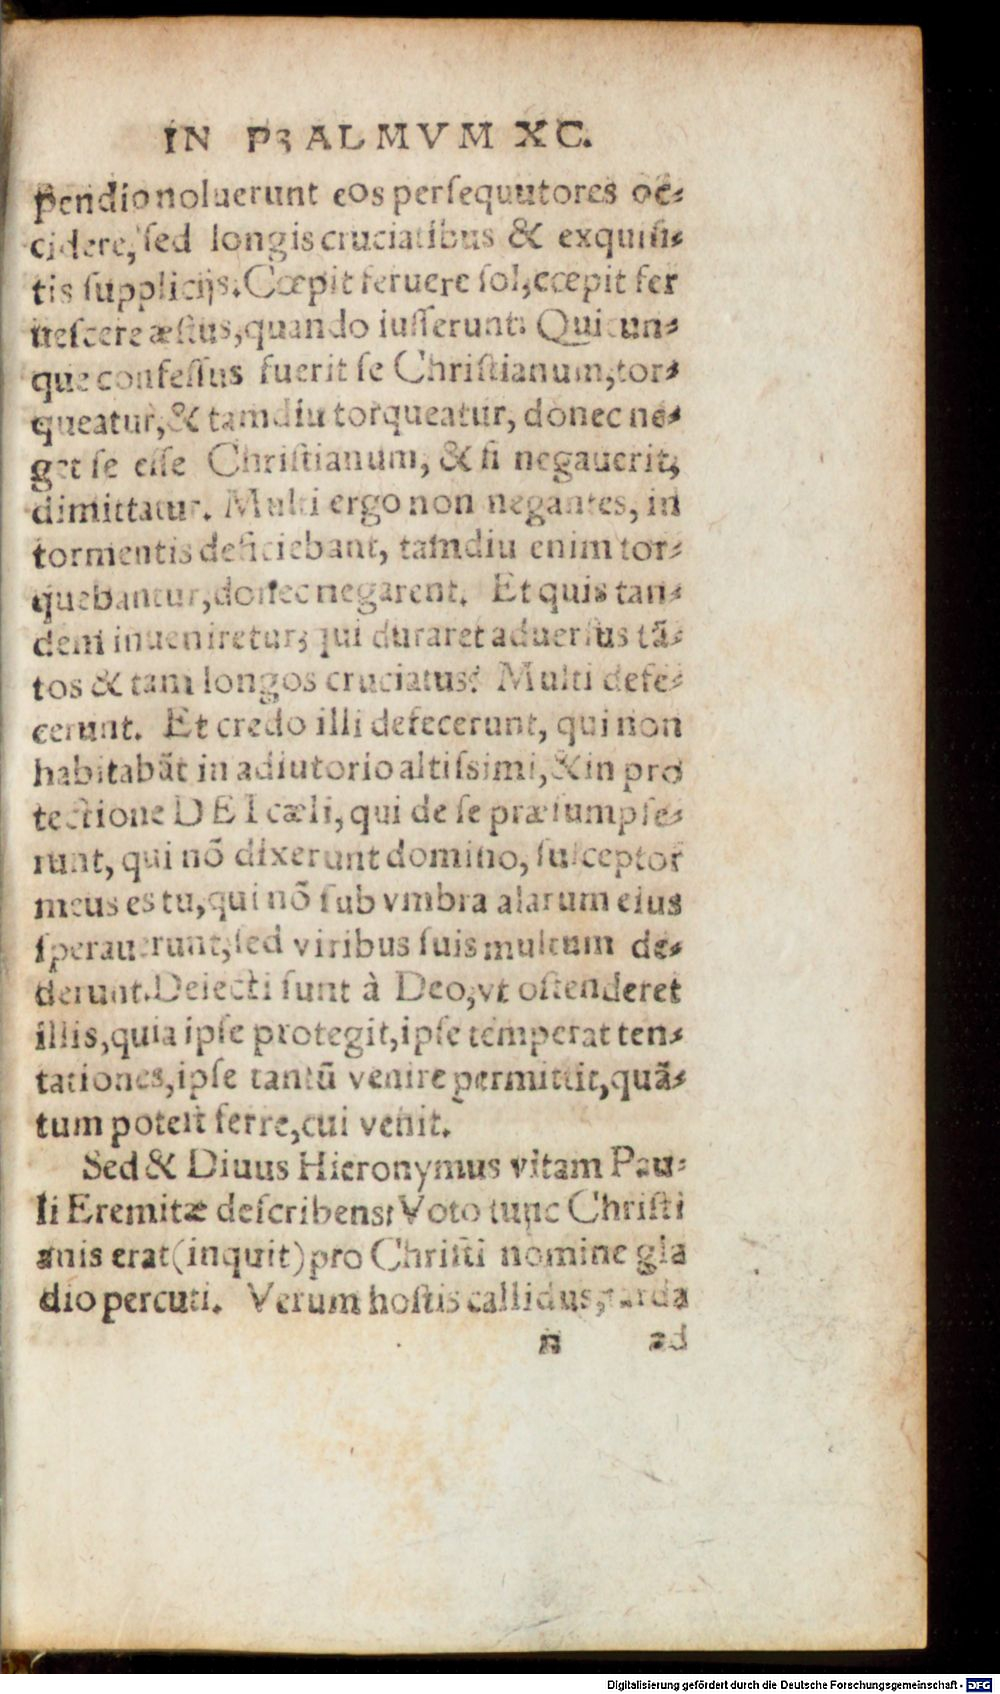 IN PSALMVM XC.
pendio noluerunt eos persequutores oc-
cidere, sed longis cruciatibus & exquisi-
tis supplicijs. Cœpit feruere sol, cœpit fer
uescere æstus, quando iusserunt: Quicun-
que confessus fuerit se Christianum, tor-
queatur, & tamdiu torqueatur, donec ne-
get se esse Christianum, & si negauerit,
dimittatur. Multi ergo non negantes, in
tormentis deficiebant, tamdiu enim tor-
quebantur, donec negarent. Et quis tan-
dem inueniretur, qui duraret aduersus tā-
tos & tam longos cruciatus? Multi defe-
cerunt. Et credo illi defecerunt, qui non
habitabāt in adiutorio altissimi, & in pro
tectione DEI cæli, qui de se præsumpse-
runt, qui nō dixerunt domino, susceptor
meus es tu, qui nō sub vmbra alarum eius
sperauerunt, sed viribus suis multum de-
derunt. Deiecti sunt à Deo, vt ostenderet
illis, quia ipse protegit, ipse temperat ten-
tationes, ipse tantū venire permittit, quā-
tum potest ferre, cui venit.
Sed & Diuus Hieronymus vitam Pau-
li Eremitæ describens: Voto tunc Christi
anis erat (inquit) pro Christi nomine gla
dio percuti. Verum hostis callidus, tarda
n ad
Digitalisierung gefördert durch die Deutsche Forschungsgemeinschaft - DFG